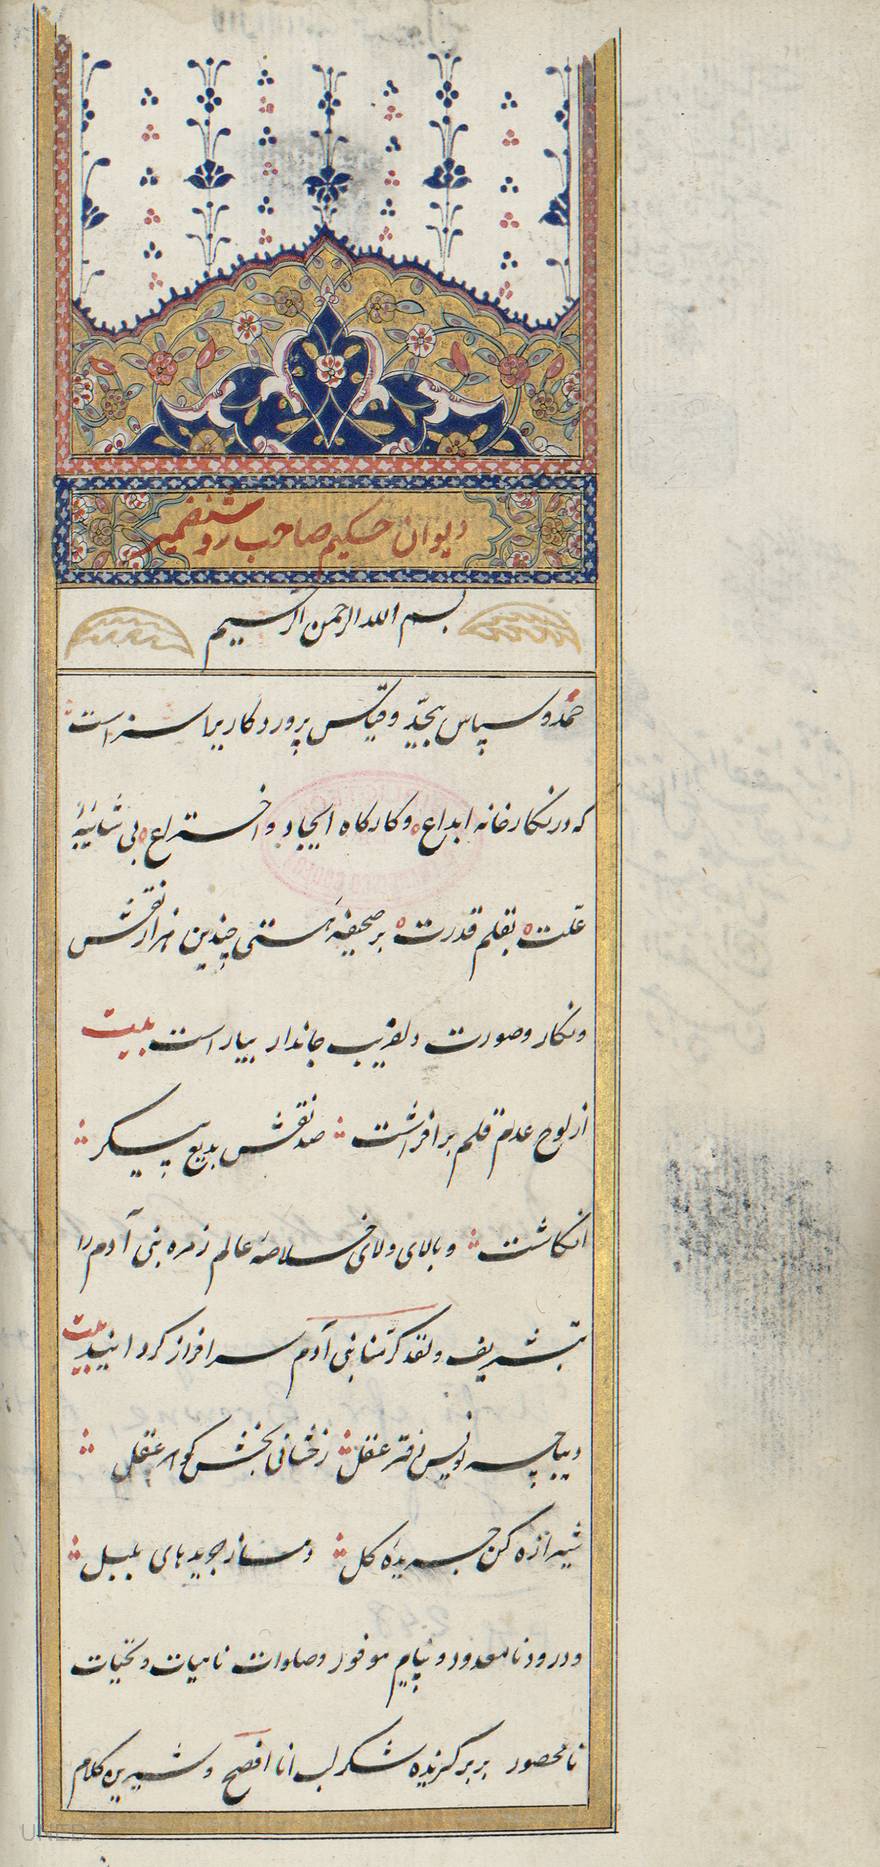 دیوان حکیم صاحب روشنضمیر
بسم الله الرحمن الرحیم
حمد و سپاس بیحدّ و قیاس پروردگاریرا سزاست
که در نگارخانه ابداع و کارگاه ایجاد و اختراع بی شائبهٔ
علت بقلم قدرت بر صحیفهٔ هستی چندین هزار نقش
و نگار و صورت دلفریب جاندار بیاراست بیت
از لوح عدم قلم برافراشت صد نقش بدیع پیکر
انگاشت و بالای والای خلاصهٔ عالم زمره بنی آدم را
بتشریف ولقد کرّمنا بنی آدم سرافراز گردانید بیت
دیباچه نویس دفتر عقل رخشانی بخش گوهر عقل
شیرازه کن جریدهٔ گل دمساز جویدهای بلبل
و درود نامعدود و پیام موفور و صلوات نامیات و تحیات
نامحصور بر برگزیده شکر لب انا افصح و شیرین کلام